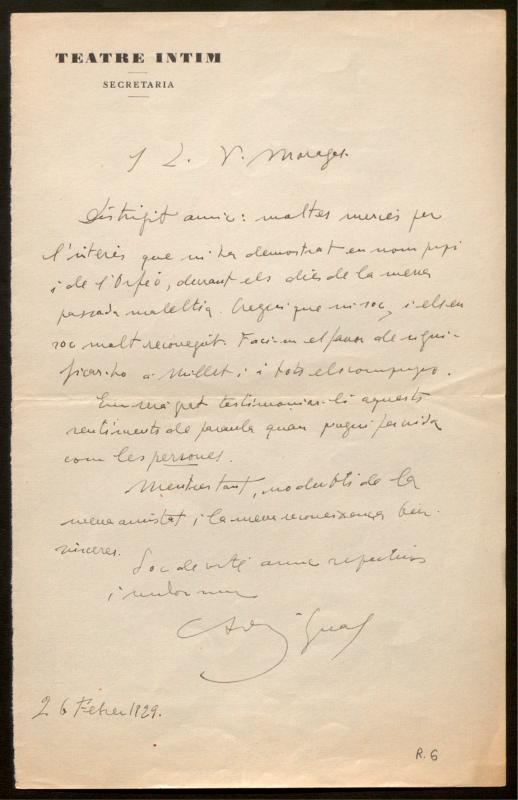 TEATRE INTIM
SECRETARIA
S L. V. Moragas.
Distingit amic: moltes mercès per
l'interès que m'ha demostrat en nom propi
i de l'Orfeó, durant els dies de la meva
passada malaltia. Cregui que ni soc, i els en
soc molt reconegut. Faci'm el favor de signi-
ficar-ho a Millet i a tots els companys.
testimoniar-li aquests
sentiments de paraula quan pugui fer vida
com les persones.
Mentrestant, no dubti de la
meva amistat i la meva reconeixença ben
sinceres.
Soc de vostè amic
i
Adrià Gual
26 Febrer 1929.
R. 6